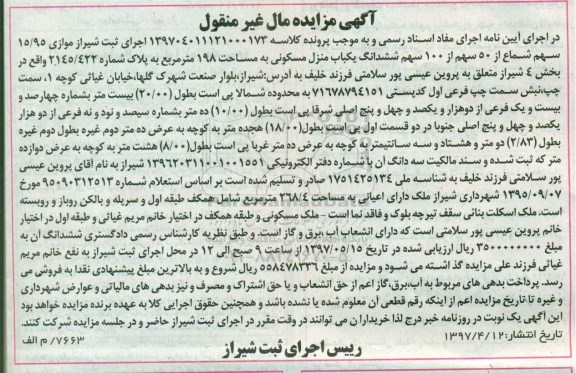 آگهی مزایده مال غیر منقول
در اجرای آیین نامه اجرای مفاد اسناد رسمی و به موجب پرونده کلاسه ۱۳۹۷۰۴۰۱۱۱۲۱۰۰۰۱۷۳ اجرای ثبت شیراز موازی ۱۵/۹۵
سهم شماع از ۵۰ سهم از ۱۰۰ سهم ششدانگ یکباب منزل مسکونی به مساحت ۱۹۸ مترمربع به پلاک شماره ۲۱۴۵/۴۲۲ واقع در
بخش ۴ شیراز متعلق به پروین عیسی پور سلامتی فرزند خلیف به آدرس:شیراز،بلوار صنعت شهرک گلها،خیابان غیاثی کوچه ۱، سمت
چپ،نبش سمت چپ فرعی اول کدپستی ۷۱۶۷۸۷۹۴۱۵۱ به محدوده شمالا پی است بطول (۲۰/۰۰) بیست متر بشماره چهارصد و
بیست و یک فرعی از دوهزار و یکصد و چهل و پنج اصلی شرقا پی است بطول (۱۰/۰۰) ده متر بشماره سیصد و نود و نه فرعی از دو هزار
یکصد و چهل و پنج اصلی جنوبا در دو قسمت اول پی است بطول (۱۸/۰۰) هجده متر به کوچه به عرض ده متر دوم غیره بطول دوم غیره
بطول (۲/۸۳) دو متر و هشتاد و سه سانتیمتر به کوچه به عرض ده متر غربا پی است بطول(۸/۰۰) هشت متر به کوچه به عرض دوازده
متر که ثبت شده و سند مالکیت سه دانگ آن با شماره دفتر الکترونیکی ۱۳۹۶۲۰۳۱۱۰۰۱۰۰۱۵۵۱ شیراز به نام آقای پروین عیسی
پور سلامتی فرزند خلیف به شناسه ملی ۱۷۵۱۴۲۵۱۳۴ صادر و تسلیم شده است بر اساس استعلام شماره ۹۵۰۹۰۳۱۲۵۱۳ مورخ
۱۳۹۵/۰۹/۰۷ شهرداری شیراز ملک دارای اعیانی به مساحت ۲۶۸/۴ مترمربع شامل همکف طبقه اول و سرپله و بالکن روباز و روبسته
است. ملک اسکلت بنائی سقف تیرچه بلوک و فاقد نما است - ملک مسکونی و طبقه همکف در اختیار خانم مریم غیاثی و طبقه اول در اختیار
خانم پروین عیسی پور سلامتی است که دارای انشعاب آب ،برق و گاز است. و طبق نظریه کارشناس رسمی دادگستری ششدانگ آن به
مبلغ ۳۵۰۰۰۰۰۰۰۰ ریال ارزیابی شده در تاریخ ۱۳۹۷/۰۵/۱۵ از ساعت ۹ صبح الی ۱۲ در محل اجرای ثبت شیراز به نفع خانم مریم
غیاثی فرزند علی مزایده گذاشته می شود و مزایده از مبلغ ۵۵۸۴۷۸۳۳۶ ریال شروع و به بالاترین مبلغ پیشنهادی نقدا به فروش می
رسد. پرداخت بدهی های مربوط به آب،برق،گاز اعم از حق انشعاب و یا حق اشتراک و مصرف و نیز بدهی های مالیاتی و عوارض شهرداری
و غیره تا تاریخ مزایده اعم از اینکه رقم قطعی آن معلوم شده یا نشده باشد و همچنین حقوق اجرایی کلا به عهده برنده مزایده خواهد بود
این آگهی یک نوبت در روزنامه خبر درج لذا خریداران می توانند در وقت مقرر در اجرای ثبت شیراز حاضر و در جلسه مزایده شرکت کنند.
تاریخ انتشار:۱۳۹۷/۴/۱۲
۷۶۶۳/ م الف
رییس اجرای ثبت شیراز